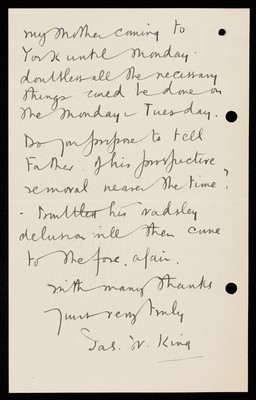 my Mother coming to
York until Monday.
doubtless all the necessary
things could be done on
the Monday & Tuesday.
Do you propose to tell
Father of his prospective
removal nearer the time?
- Doubtless his
delusion will then come
to the fore. again.
with many thanks
Yours very truly
Jas. W. King